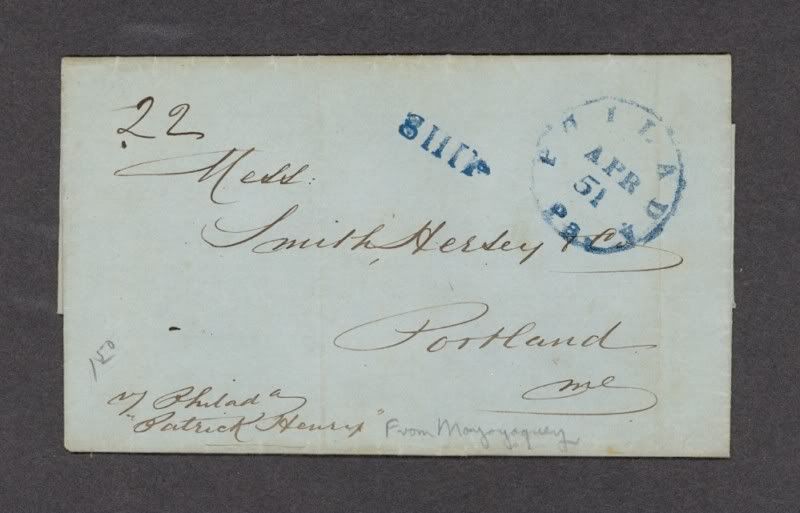 22
SHIP
PHILADA
APR
51
Pa.
Mess:
Smith, Hersey & Co
Portland
Me
150
"Patrick Henry"
v/ Philada
From